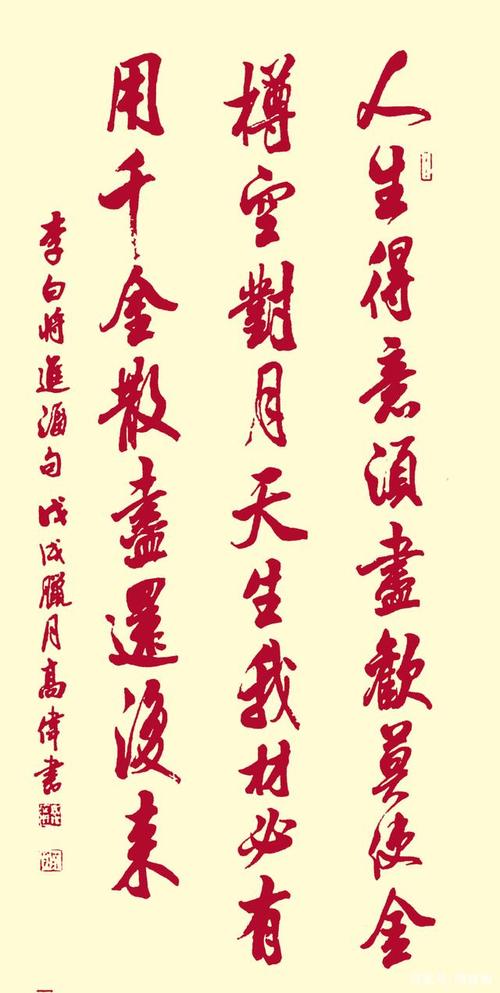 人生得意須盡歡莫使金
樽空對月天生我材必有
用千金散盡還復来
李白將進酒句戊戌臘月高偉書